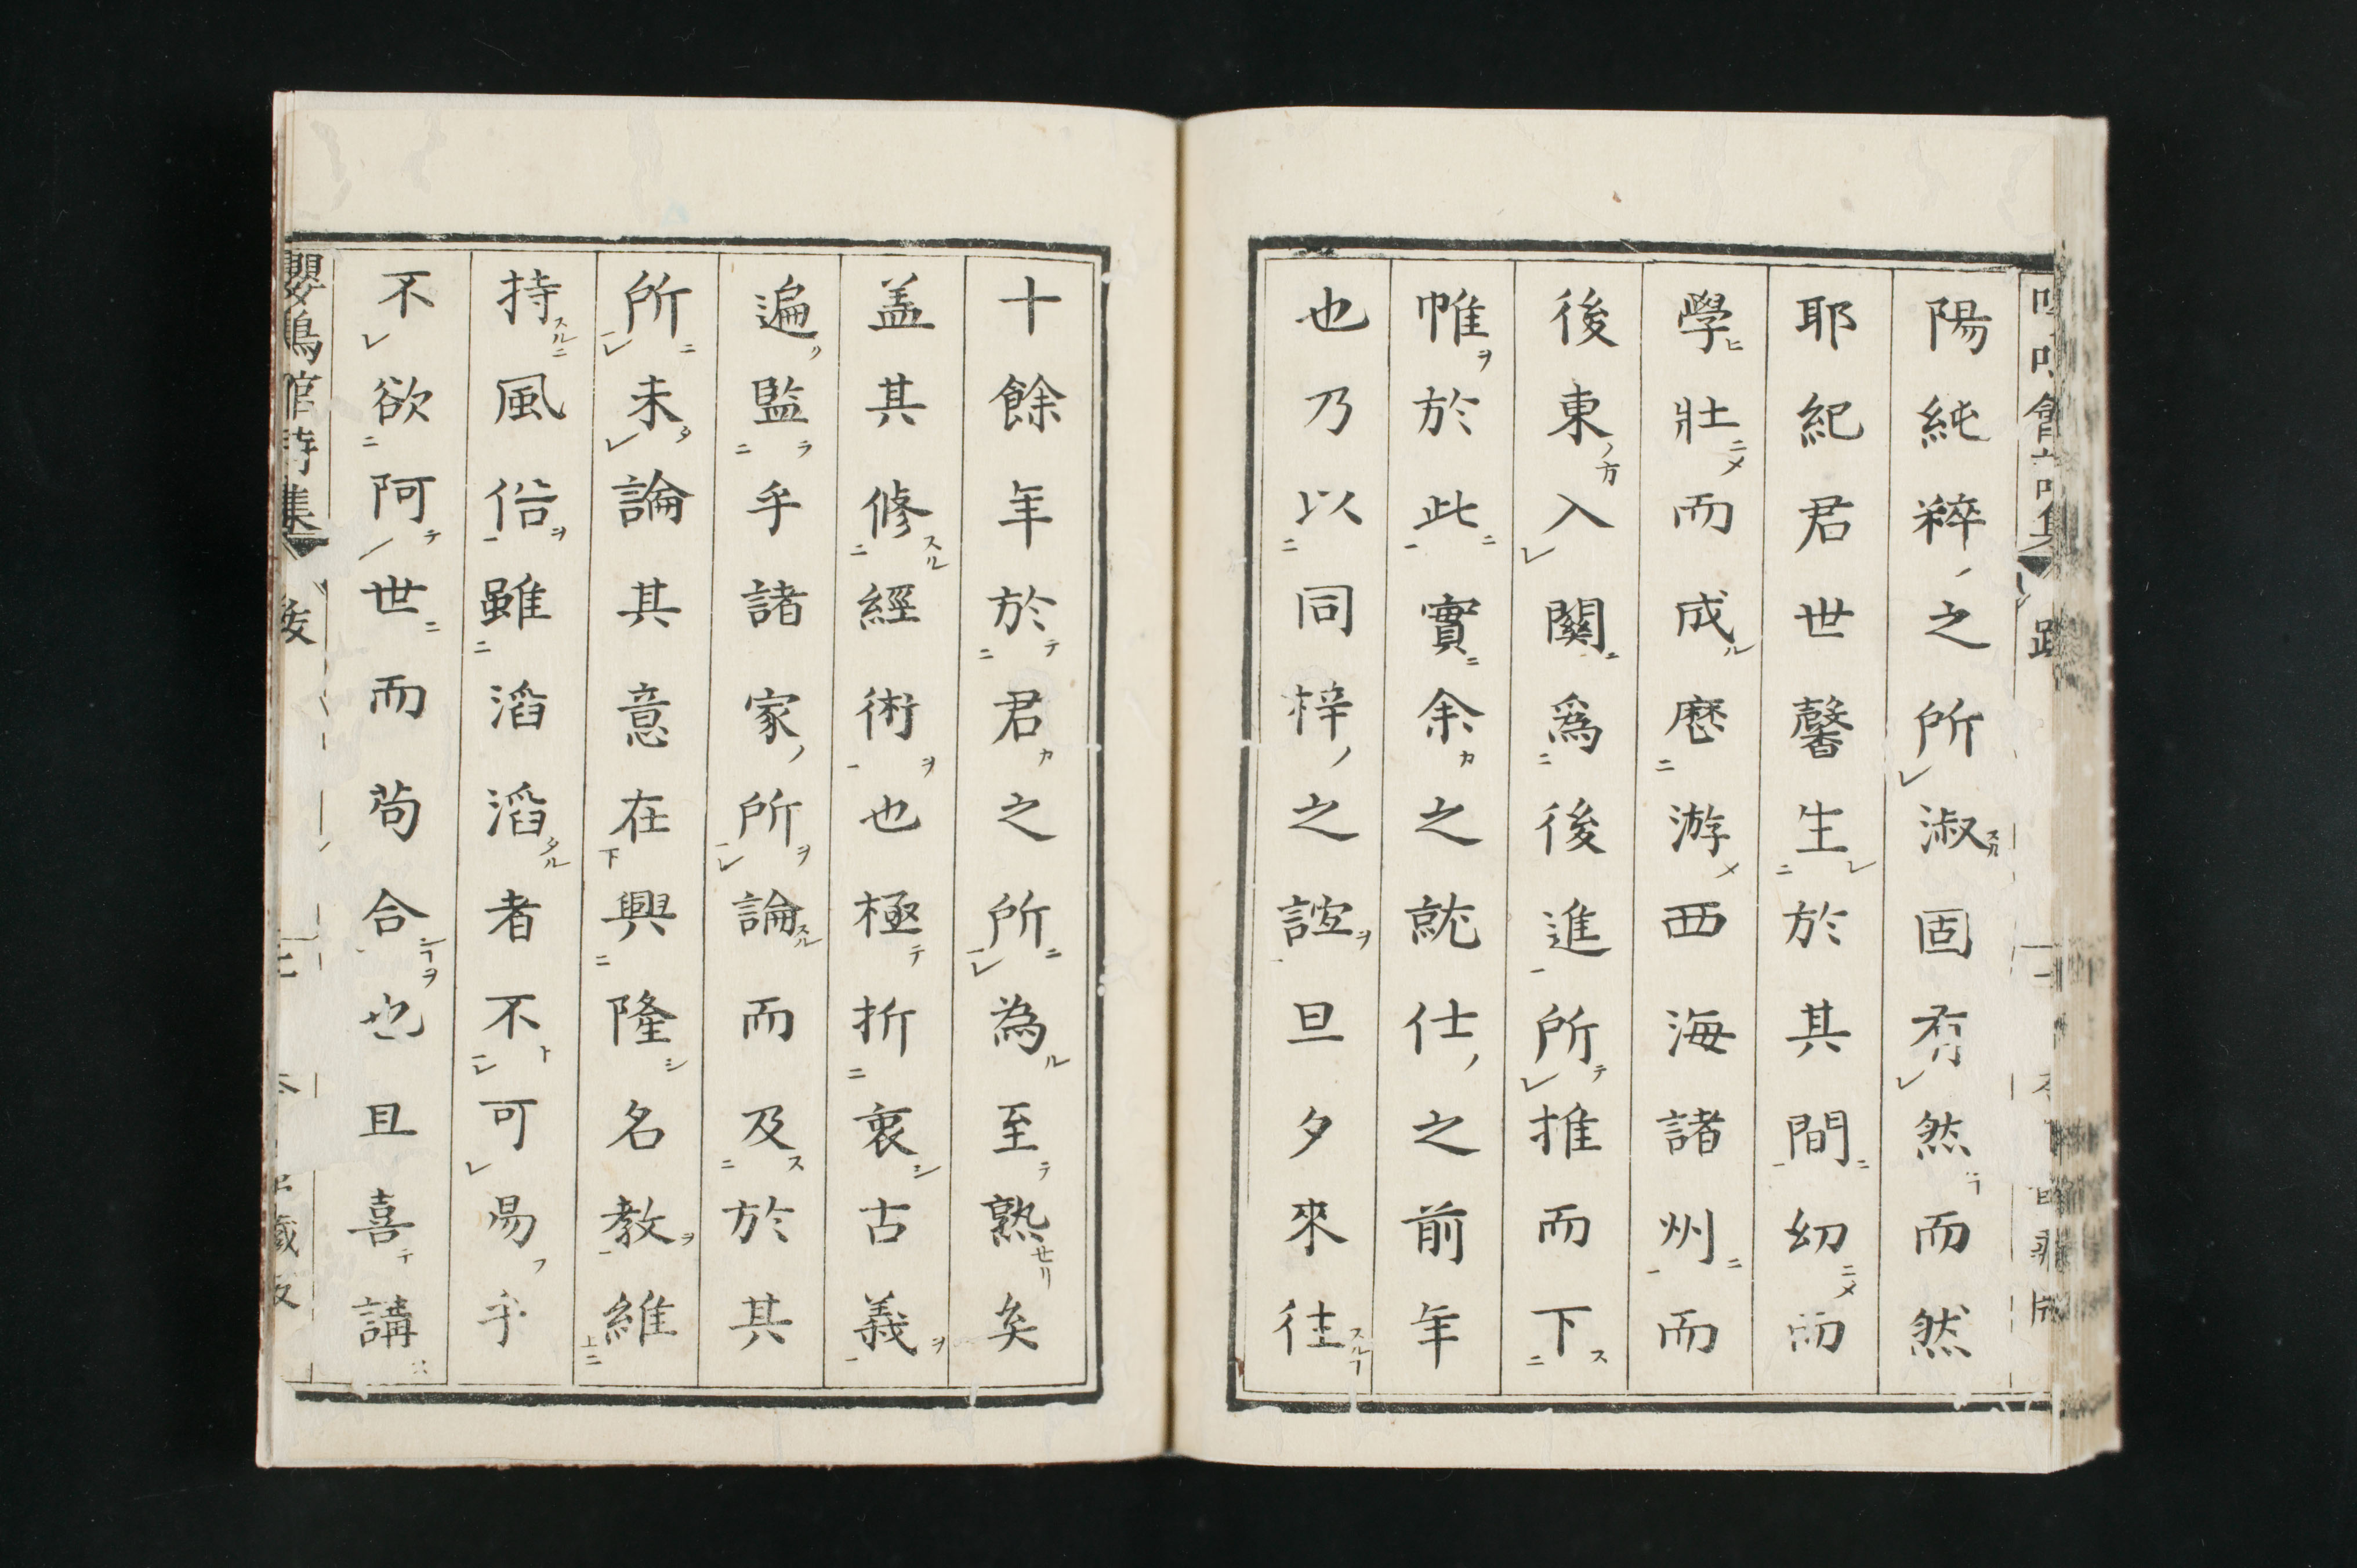 陽純粹之所淑固有然而然
耶紀君世馨生於其間幼而
學壯而成歷游西海諸州而
後東入關爲後進所推而下
帷於此實余之就仕之前年
也乃以同梓之誼旦夕來往
十餘年於君之所為至熟矣
盖其修經術也極折衷古義
遍監乎諸家所論而及於其
所未論其意在興隆名教維
持風俗雖滔滔者不可易乎
不欲阿世而苟合也且喜講
嚶鳴館詩集